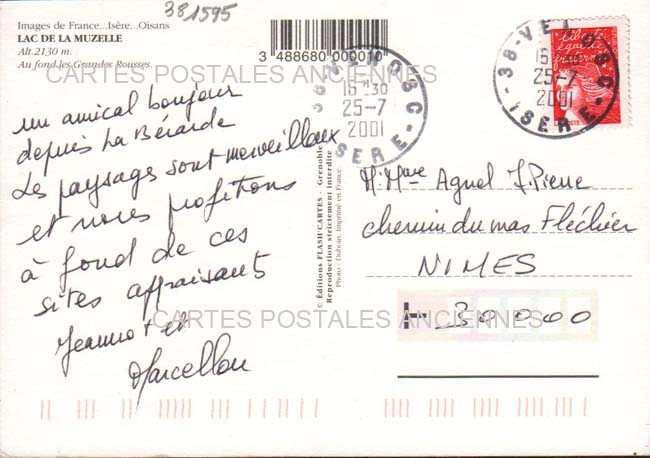 38 1595
Images de France...Isère...Oisans
LAC DE LA MUZELLE
Alt. 2130 m.
Au fond les Grandes Rousses.
3 488680 000010
CARTES POSTALES ANCIENNES
un amical bonjour
depuis La Bérarde
Les paysages sont merveilleux
et nous profitons
à fond de ces
sites appaisants
Jeannot et
Marcellou
© Éditions FLASH'CARTES - Grenoble
Reproduction strictement interdite
Photo : Duboin. Imprimé en France.
38
OBC
15 H30
25-7
2001
ISERE
38-VE
OBC
15
25-7
2001
ISERE
Liberté
égalité
fraternité
LA POSTE
M. Mme Agnel J. Pierre
chemin du mas Fléchier
NIMES
30000
CARTES POSTALES ANCIENNES